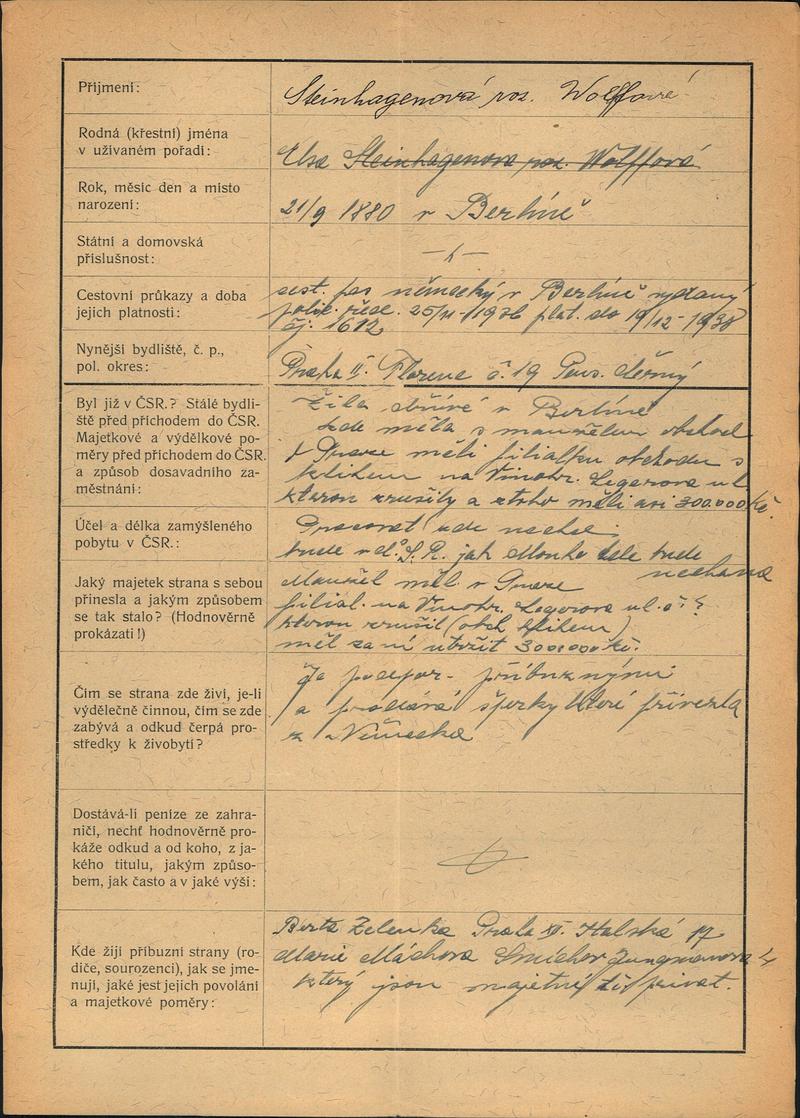 Příjmení:
Steinhagenová roz. Wolffová
Rodná (křestní) jména
v užívaném pořadí:
Elsa Steinhagenova roz. Wolffová
Rok, měsíc den a místo
narození:
21/9 1880 v Berlíně
Státní a domovská
příslušnost:
Cestovní průkazy a doba
jejich platnosti:
cest. pas německý v Berlíně vydaný
polic. řed. 25/11-1936 plat. do 19/12-1938
čj. 1612
Nynější bydliště, č. p.,
pol. okres:
Praha II. Florenc č. 19 Pens. Černý
Byl již v ČSR.? Stálé bydli-
ště před příchodem do ČSR.
Majetkové a výdělkové po-
měry před příchodem do ČSR.
a způsob dosavadního za-
městnání:
Žila dříve v Berlíně
kde měla s manželem obchod
v Praze měli filialku obchodu s
na Vinohr. Legerova ul.
kterou zrušily a z toho měli asi 300.000 Kč.
Účel a délka zamýšleného
pobytu v ČSR.:
Pracovat zde nechce
bude v Č.S.R. jak dlouho zde bude
nechaná
Jaký majetek strana s sebou
přinesla a jakým způsobem
se tak stalo? (Hodnověrně
prokázati!)
Manžel měl v Praze
filial. na Vinohr. Legerova ul. č. ?
kterou zrušil (obch.
měl za ní utržit 300000 Kč.
Čím se strana zde živí, je-li
výdělečně činnou, čím se zde
zabývá a odkud čerpá pro-
středky k živobytí?
Je podpor. příbuznými
a prodává šperky které přivezla
z Německa
Dostává-li peníze ze zahra-
ničí, nechť hodnověrně pro-
káže odkud a od koho, z ja-
kého titulu, jakým způso-
bem, jak často a v jaké výši:
Kde žijí příbuzní strany (ro-
diče, sourozenci), jak se jme-
nují, jaké jest jejich povolání
a majetkové poměry:
Berta Zelenka Praha XII. Italská 17
Marie Máchova Smíchov Jungmanova 4
který jsou majetní žijí privat.